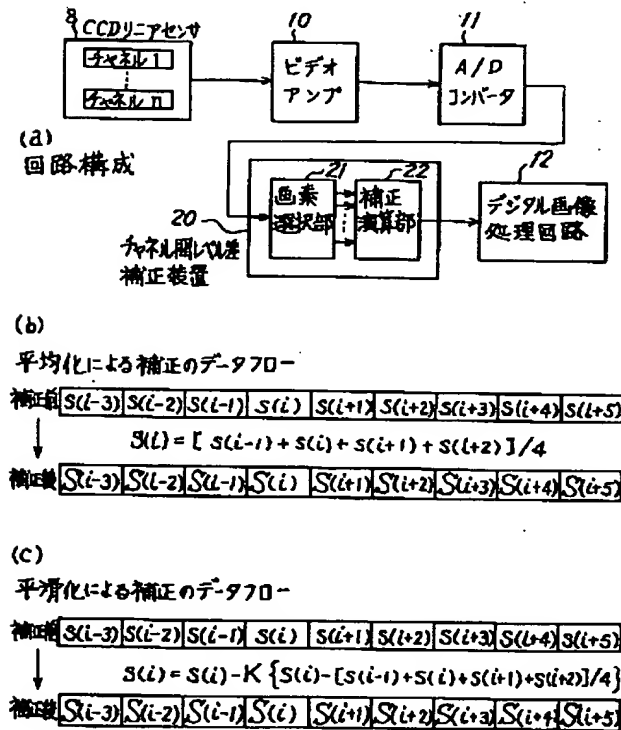 8
CCDリニアセンサ
チャネル1
チャネルn
10
ビデオ
アンプ
11
A/D
コンバータ
(a)
回路構成
20
チャネル間レベル差
補正装置
21
画素
選択部
22
補正
演算部
12
デジタル画像
処理回路
(b)
平均化による補正のデータフロー
補正前 S(i-3) S(i-2) S(i-1) S(i) S(i+1) S(i+2) S(i+3) S(i+4) S(i+5)
S(i)=[S(i-1)+S(i)+S(i+1)+S(i+2)]/4
補正後 S(i-3) S(i-2) S(i-1) S(i) S(i+1) S(i+2) S(i+3) S(i+4) S(i+5)
(c)
平滑化による補正のデータフロー
補正前 S(i-3) S(i-2) S(i-1) S(i) S(i+1) S(i+2) S(i+3) S(i+4) S(i+5)
S(i)=S(i)-K{S(i)-[S(i-1)+S(i)+S(i+1)+S(i+2)]/4}
補正後 S(i-3) S(i-2) S(i-1) S(i) S(i+1) S(i+2) S(i+3) S(i+4) S(i+5)